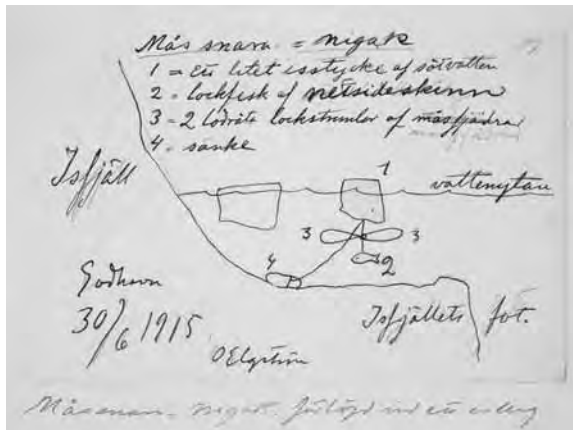 Mås snara = nigak
1 = ett litet isstycke af sötvatten
2 = lockfisk af netsideskinn
3 = 2 lodräta lockstrimlor af måsfjädra
4 = sänke
Isfjäll
1
vattenytan
3 3
4 2
Godhavn
30/6 1915
OElgström
Isfjällets fot.
Måsesnara = nigak